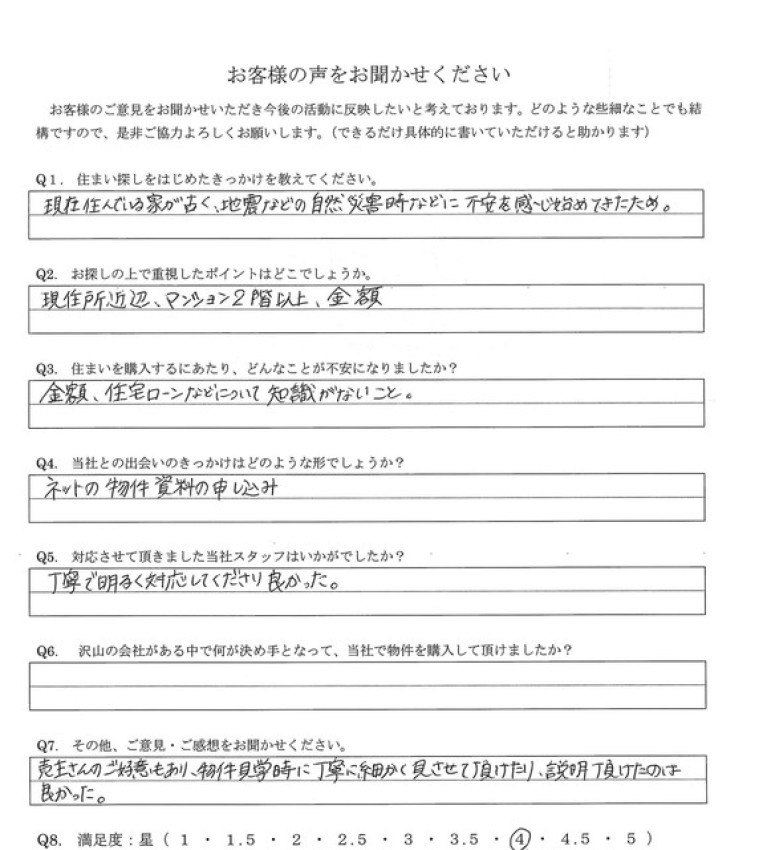 お客様の声をお聞かせください
お客様のご意見をお聞かせいただき今後の活動に反映したいと考えております。どのような些細なことでも結
構ですので、是非ご協力よろしくお願いします。(できるだけ具体的に書いていただけると助かります)
Q1. 住まい探しをはじめたきっかけを教えてください。
現在住んでいる家が古く、地震などの自然災害時などに不安を感じ始めてきたため。
Q2. お探しの上で重視したポイントはどこでしょうか。
現住所近辺、マンション2階以上、金額
Q3. 住まいを購入するにあたり、どんなことが不安になりましたか?
金額、住宅ローンなどについて知識がないこと。
Q4. 当社との出会いのきっかけはどのような形でしょうか?
ネットの物件資料の申し込み
Q5. 対応させて頂きました当社スタッフはいかがでしたか?
丁寧で明るく対応してくださり良かった。
Q6. 沢山の会社がある中で何が決め手となって、当社で物件を購入して頂けましたか?
Q7. その他、ご意見・ご感想をお聞かせください。
売主さんのご好意もあり、物件見学時に丁寧に細かく見させて頂けたり、説明頂けたのは
良かった。
Q8. 満足度:星( 1 ・ 1.5 ・ 2 ・ 2.5 ・ 3 ・ 3.5 ・ 4 ・ 4.5 ・ 5 )